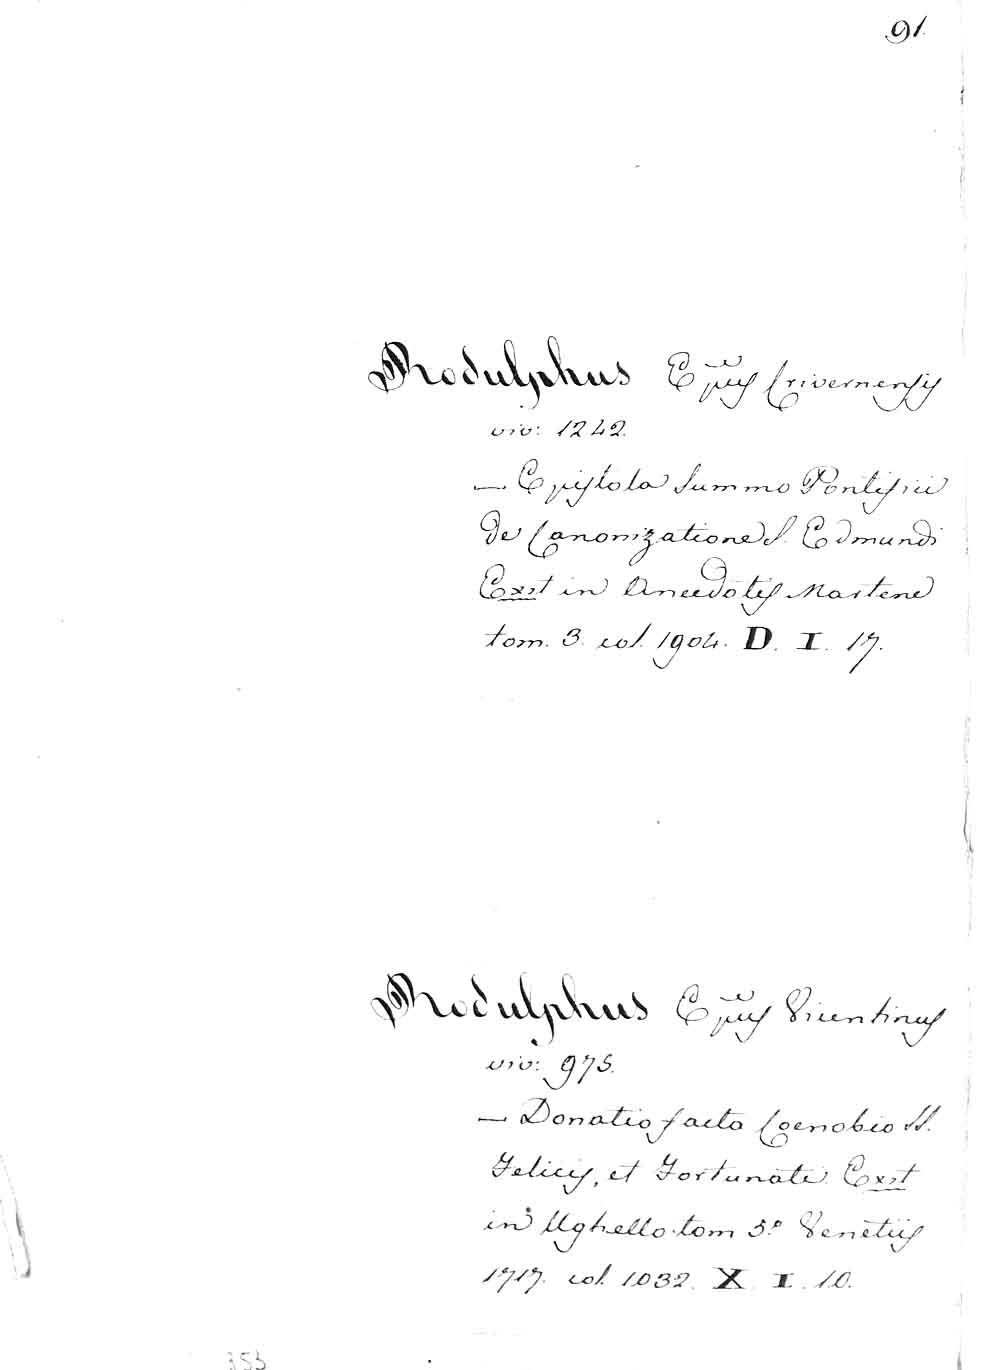 91.
Rodulphus Epus Crivernensis
viv: 1242.
— Epistola Summo Pontifici
de Canonizatione S. Edmundi
Exst in Anecdotis Martene
tom. 3. col. 1904. D. I. 17.
Rodulphus Epus Vicentinus
viv: 975.
— Donatio facta Coenobio SS.
Felicis, et Fortunati Exst
in Ughello tom 5.° Venetiis
1717. col. 1032. X. I. 10.
353